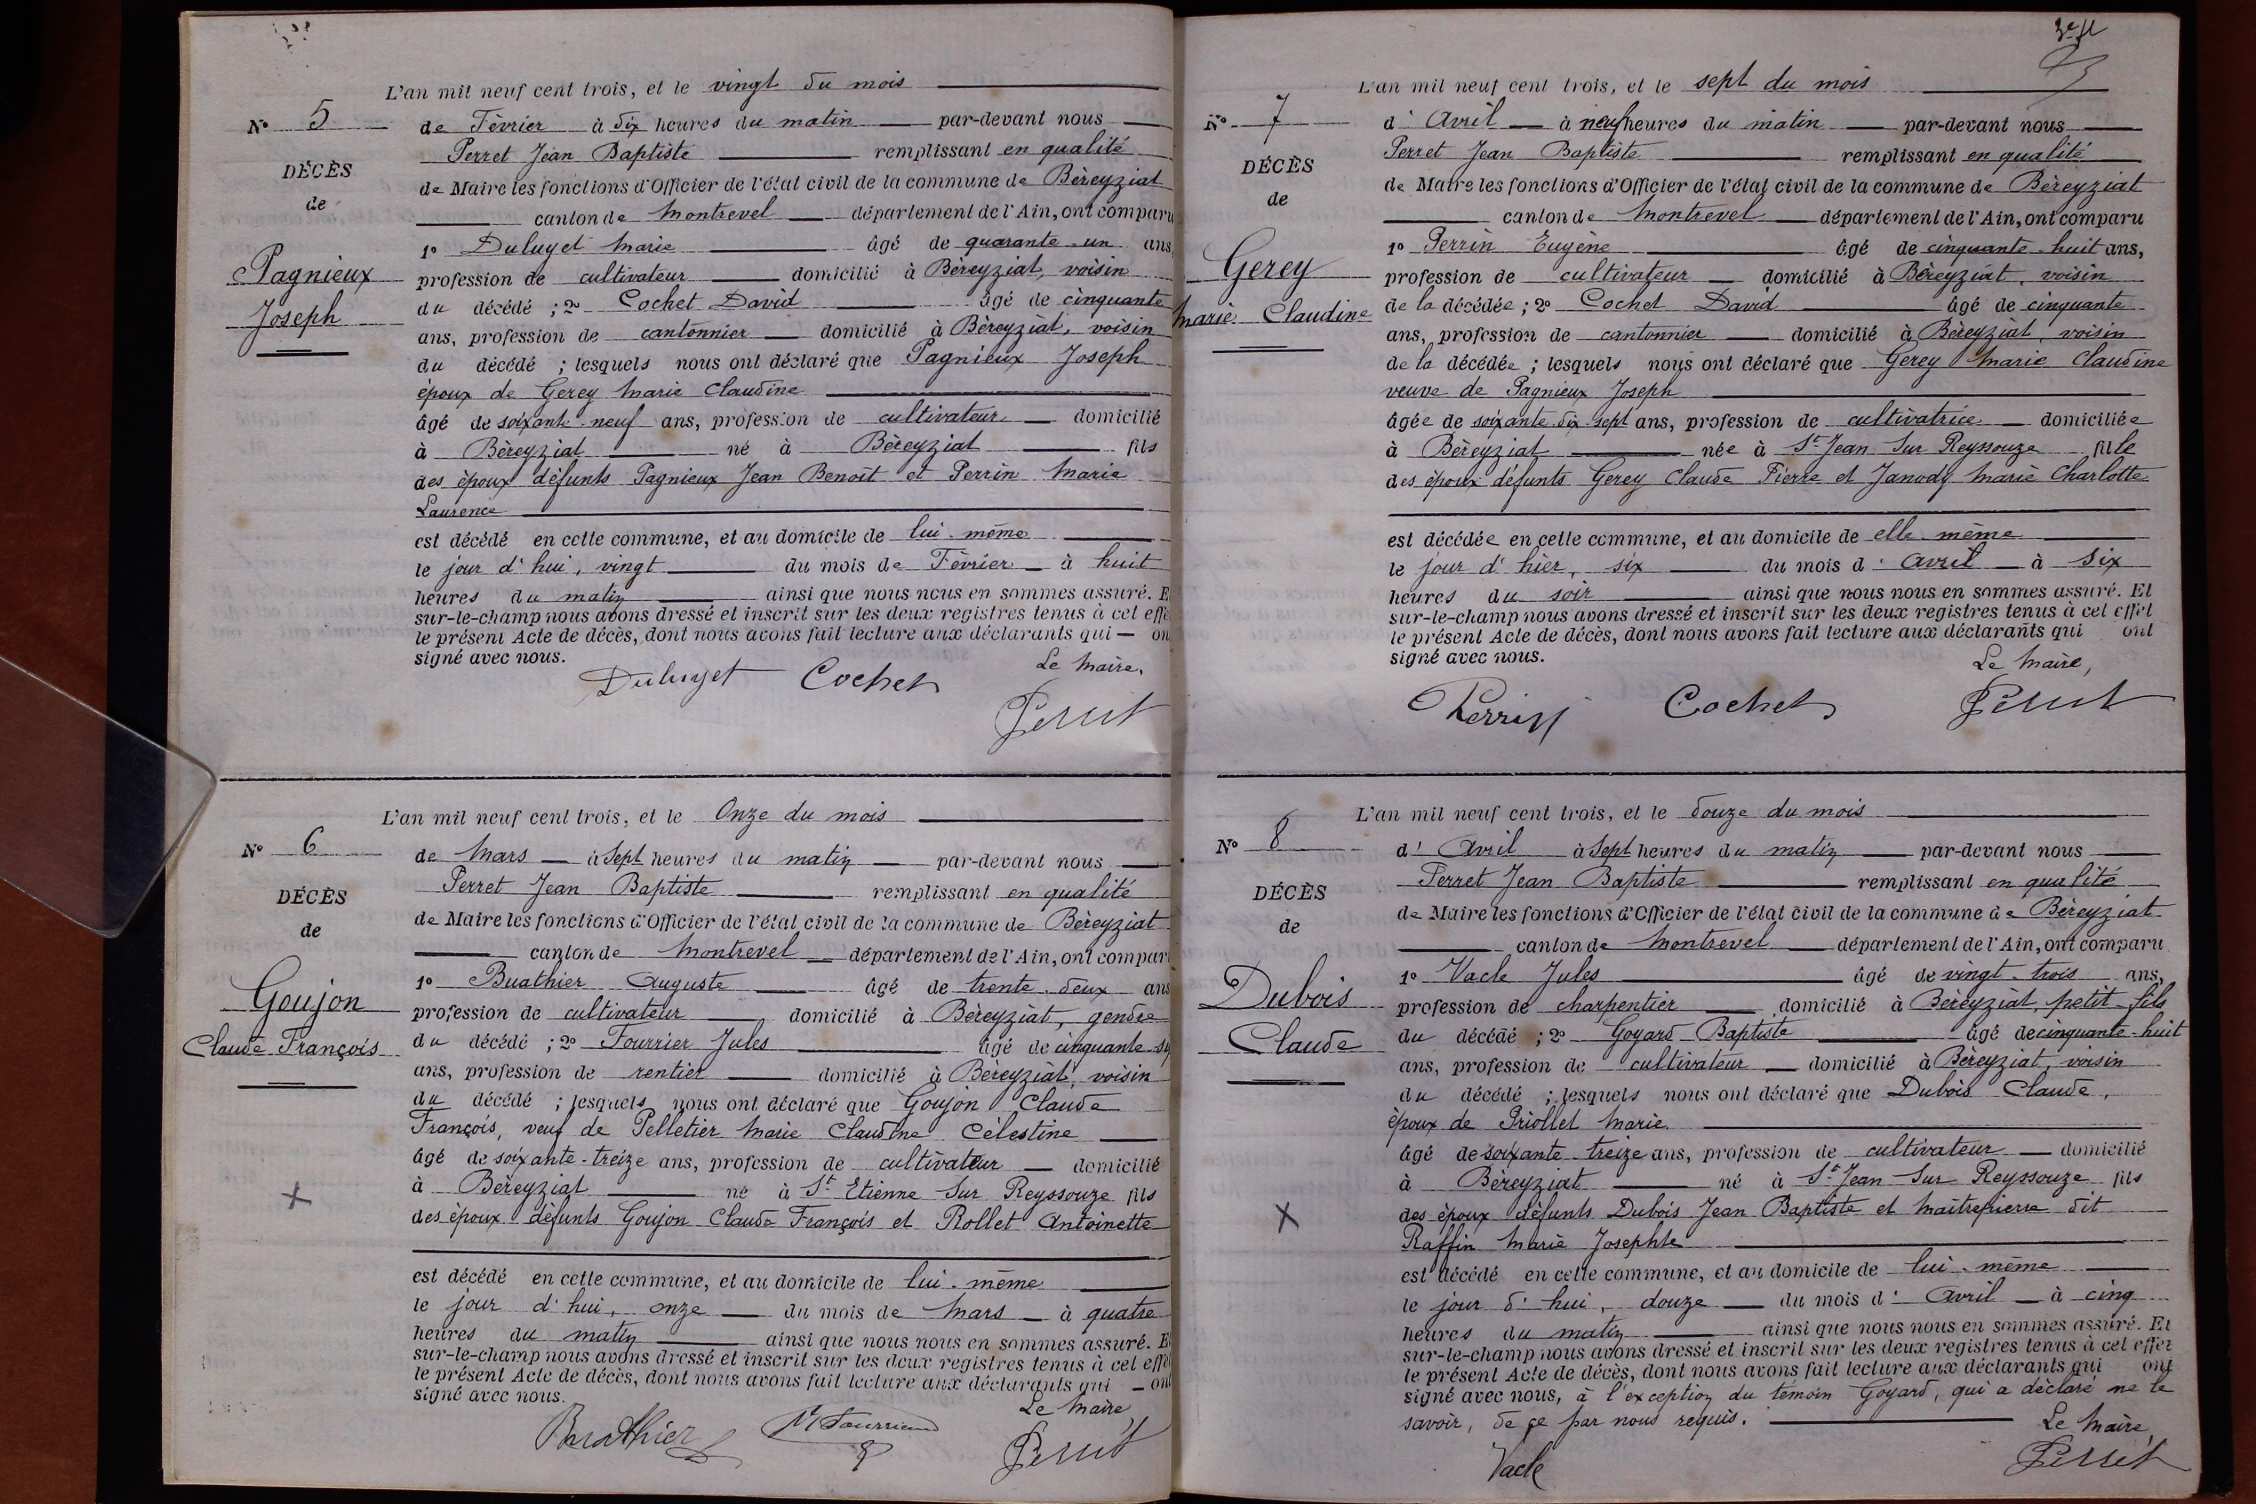 L'an mil neuf cent trois, et le vingt du mois
N° 5
de Fèvrier à dix heures du matin par-devant nous
Perret Jean Baptiste remplissant en qualité
DÉCÈS
de Maire les fonctions d'Officier de l'état civil de la commune de Bèreyziat
de
canton de Montrevel département de l'Ain, ont comparu
1° Duluyet Marie âgé de quarante-un ans
Pagnieux
profession de cultivateur domicilié à Bèreyziat, voisin
Joseph
du décédé ; 2° Cochet David âgé de cinquante
ans, profession de cantonnier domicilié à Bèreyziat, voisin
du décédé ; lesquels nous ont déclaré que Pagnieux Joseph
èpoux de Gerey Marie Claudine
âgé de soixante-neuf ans, profession de cultivateur domicilié
à Bèreyziat né à Bèreyziat fils
des èpoux dèfunts Pagnieux Jean Benoît et Perrin Marie
Laurence
est décédé en cette commune, et au domicile de lui-même
le jour d'hui, vingt du mois de Fèvrier à huit
heures du matin ainsi que nous nous en sommes assuré. E
sur-le-champ nous avons dressé et inscrit sur les deux registres tenus à cet effe
le présent Acte de décès, dont nous avons fait lecture aux déclarants qui on
signé avec nous.
Le Maire,
Duluyet Cochet
Perret
L'an mil neuf cent trois, et le Onze du mois
N° 6
de Mars à Sept heures du matin par-devant nous
Perret Jean Baptiste remplissant en qualité
DÉCÈS
de Maire les fonctions d'Officier de l'état civil de la commune de Bèreyziat
de
canton de Montrevel département de l'Ain, ont compar
1° Buathier Auguste âgé de trente-deux ans
Goujon
profession de cultivateur domicilié à Bèreyziat, gendre
Claude François
du décédé ; 2° Fourrier Jules âgé de cinquante-s
ans, profession de rentier domicilié à Bèreyziat, voisin
du décédé ; lesquels nous ont déclaré que Goujon Claude
François, veuf de Pelletier Marie Claudine Cèlestine
âgé de soixante-treize ans, profession de cultivateur domicilié
à Bèreyziat né à St Etienne Sur Reyssouze fils
des èpoux dèfunts Goujon Claude François et Rollet Antoinette
est décédé en cette commune, et au domicile de lui-même
le jour d'hui, onze du mois de Mars à quatre
heures du matin ainsi que nous nous en sommes assuré. E
sur-le-champ nous avons dressé et inscrit sur les deux registres tenus à cet effe
le présent Acte de décès, dont nous avons fait lecture aux déclarants qui on
signé avec nous.
Le Maire
Buathier Fourrier
Perret
L'an mil neuf cent trois, et le sept du mois
N° 7
d'Avril à neuf heures du matin par-devant nous
Perret Jean Baptiste remplissant en qualité
DÉCÈS
de Maire les fonctions d'Officier de l'état civil de la commune de Bèreyziat
de
canton de Montrevel département de l'Ain, ont comparu
1° Perrin Eugène âgé de cinquante-huit ans,
Gerey
profession de cultivateur domicilié à Bèreyziat, voisin
Marie Claudine
de la décédée ; 2° Cochet David âgé de cinquante
ans, profession de cantonnier domicilié à Bèreyziat, voisin
de la décédée ; lesquels nous ont déclaré que Gerey Marie Claudine
veuve de Pagnieux Joseph
âgée de soixante-dix-sept ans, profession de cultivatrice domiciliée
à Bèreyziat née à St Jean Sur Reyssouze fille
des èpoux dèfunts Gerey Claude Pierre et Janody Marie Charlotte
est décédée en cette commune, et au domicile de elle-même
le jour d'hier, six du mois d'Avril à six
heures du soir ainsi que nous nous en sommes assuré. Et
sur-le-champ nous avons dressé et inscrit sur les deux registres tenus à cet effet
le présent Acte de décès, dont nous avons fait lecture aux déclarants qui ont
signé avec nous.
Le Maire,
Perrin Cochet Perret
L'an mil neuf cent trois, et le douze du mois
N° 8
d'Avril à Sept heures du matin par-devant nous
Perret Jean Baptiste remplissant en qualité
DÉCÈS
de Maire les fonctions d'Officier de l'état civil de la commune de Bèreyziat
de
canton de Montrevel département de l'Ain, ont comparu
1° Vacle Jules âgé de vingt-trois ans,
Dubois
profession de charpentier domicilié à Bèreyziat, petit-fils
Claude
du décédé ; 2° Goyard Baptiste âgé de cinquante-huit
ans, profession de cultivateur domicilié à Bèreyziat, voisin
du décédé ; lesquels nous ont déclaré que Dubois Claude,
èpoux de Priollet Marie
âgé de soixante-treize ans, profession de cultivateur domicilié
à Bèreyziat né à St Jean Sur Reyssouze fils
des èpoux dèfunts Dubois Jean Baptiste et Maîtrepierre dit
Raffin Marie Josephte
est décédé en cette commune, et au domicile de lui-même
le jour d'hui, douze du mois d'Avril à cinq
heures du matin ainsi que nous nous en sommes assuré. Et
sur-le-champ nous avons dressé et inscrit sur les deux registres tenus à cet effet
le présent Acte de décès, dont nous avons fait lecture aux déclarants qui ont
signé avec nous, à l'exception du témoin Goyard, qui a déclaré ne le
savoir, de ce par nous requis.
Le Maire,
Vacle Perret